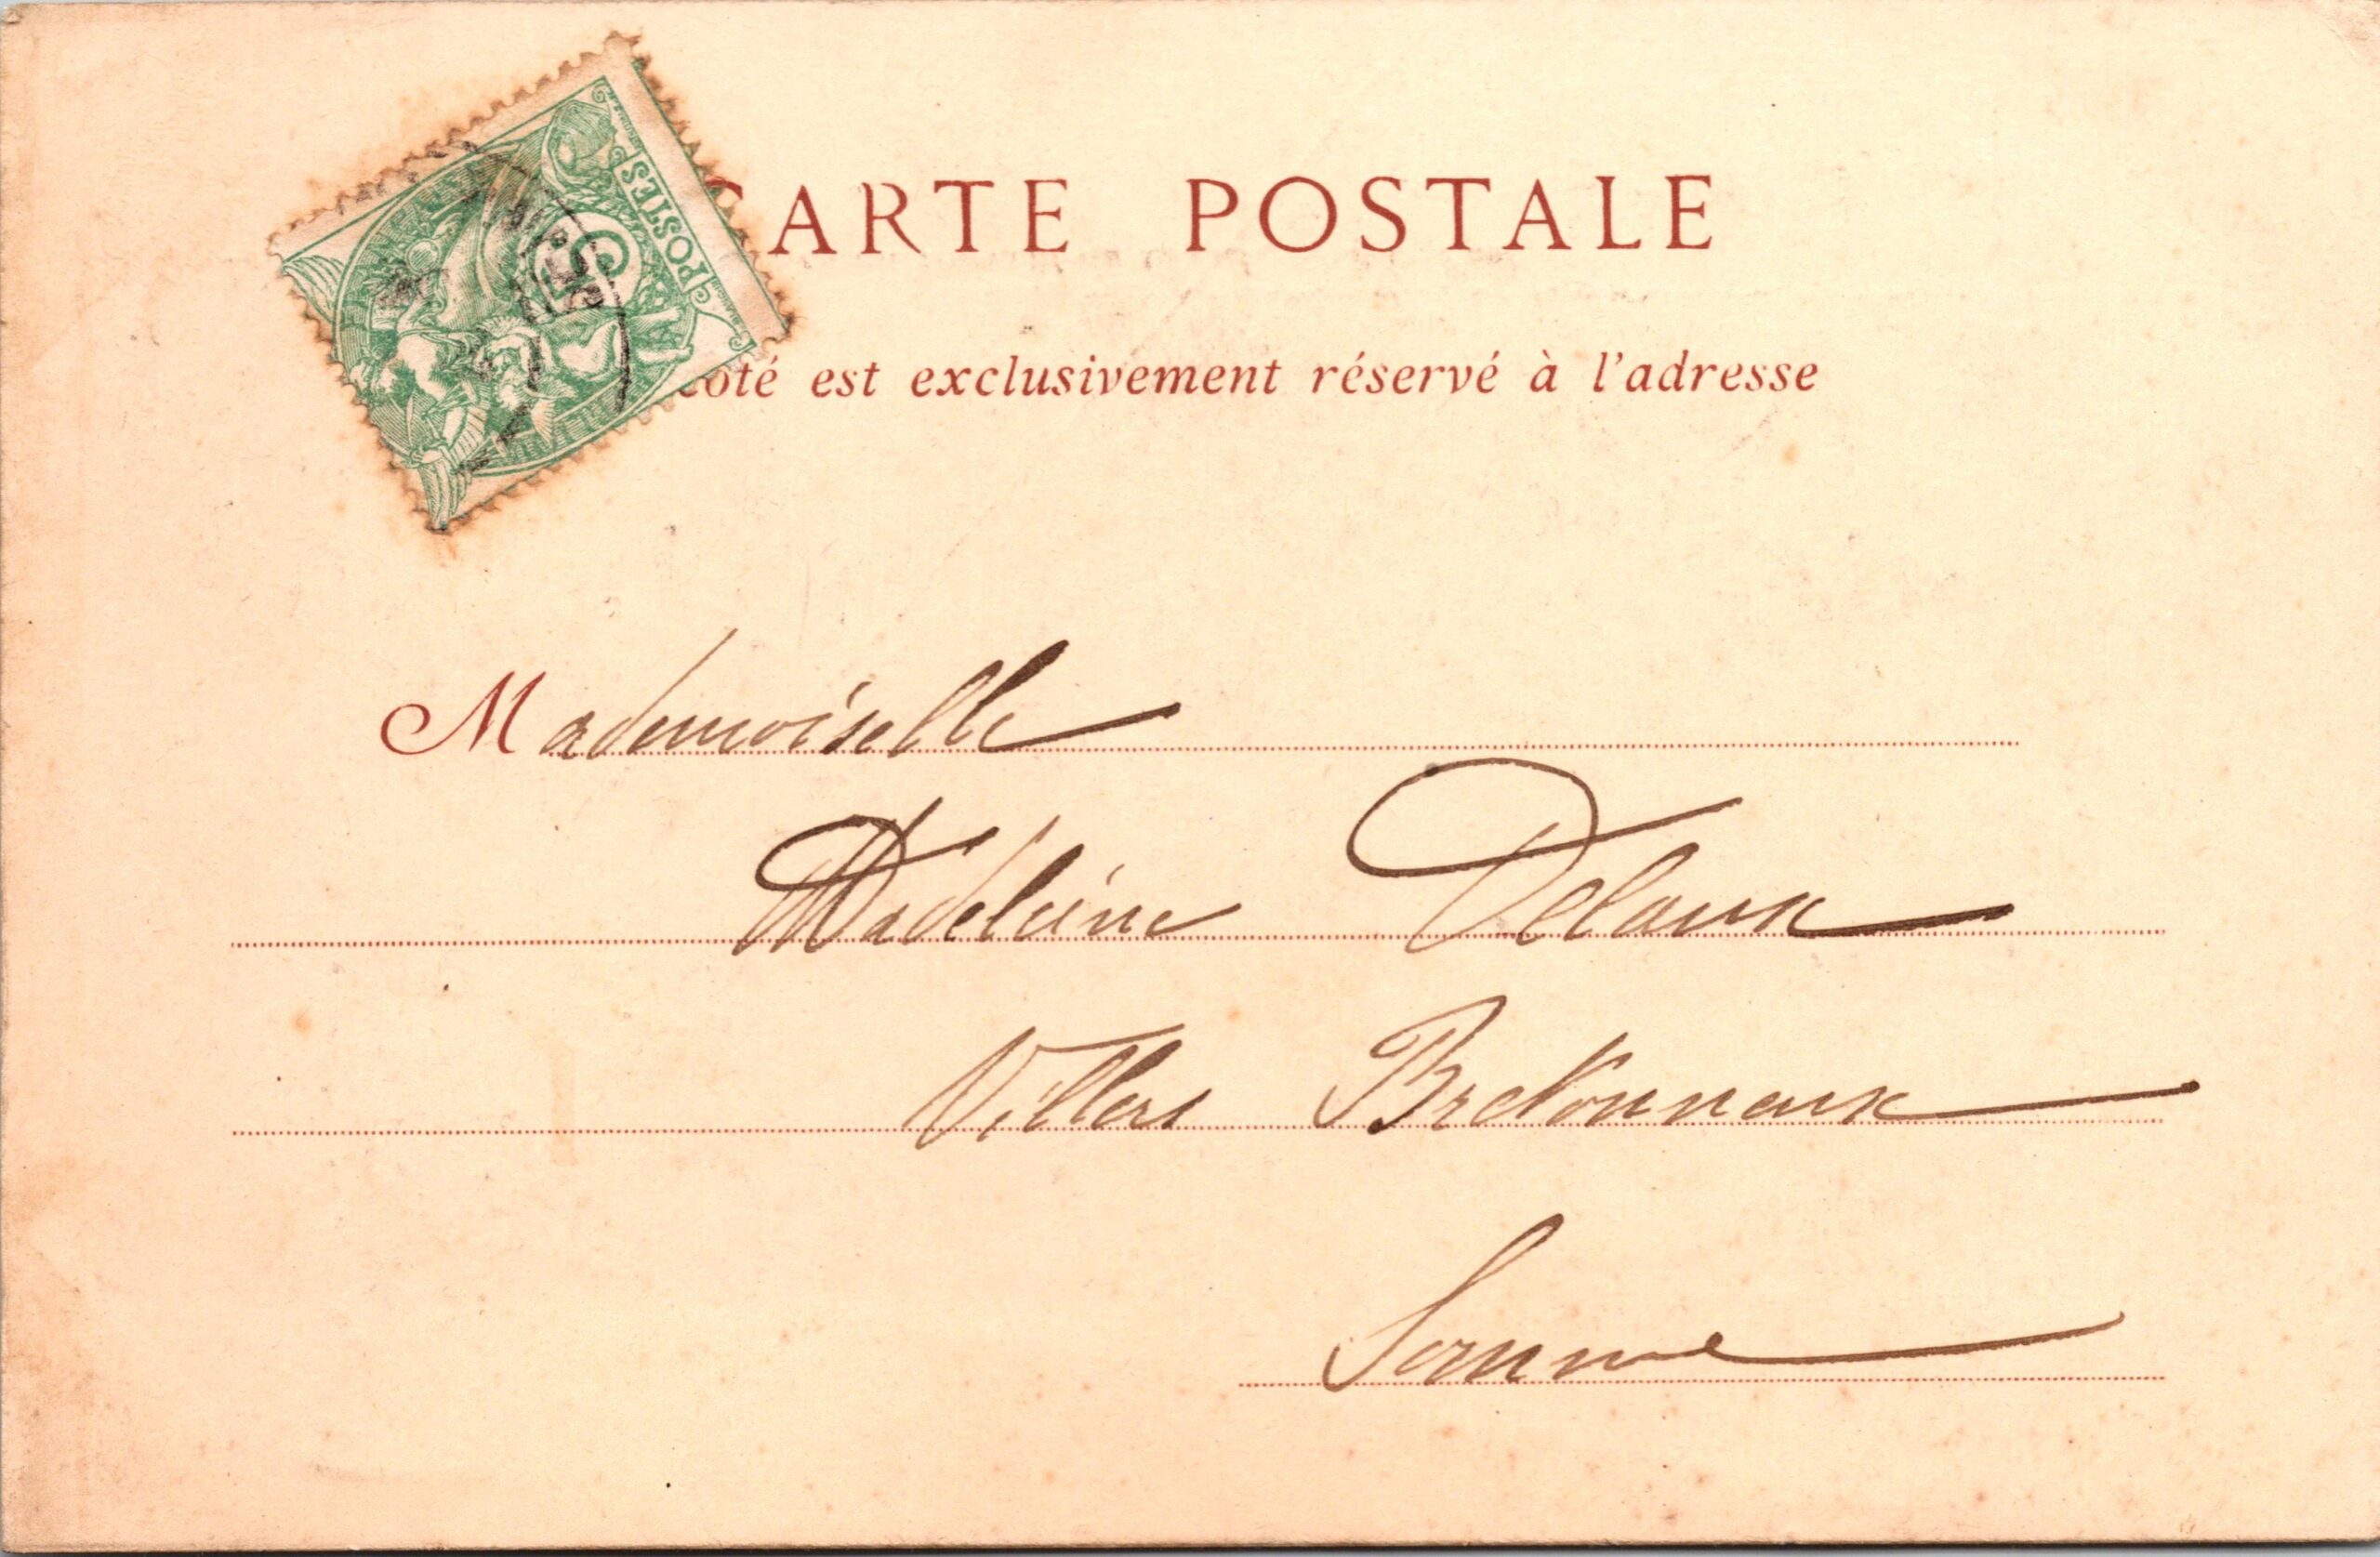 POSTES
5
CARTE POSTALE
côté est exclusivement réservé à l'adresse
Mademoiselle
Madeleine Delaux
Villers Bretonneux
Somme